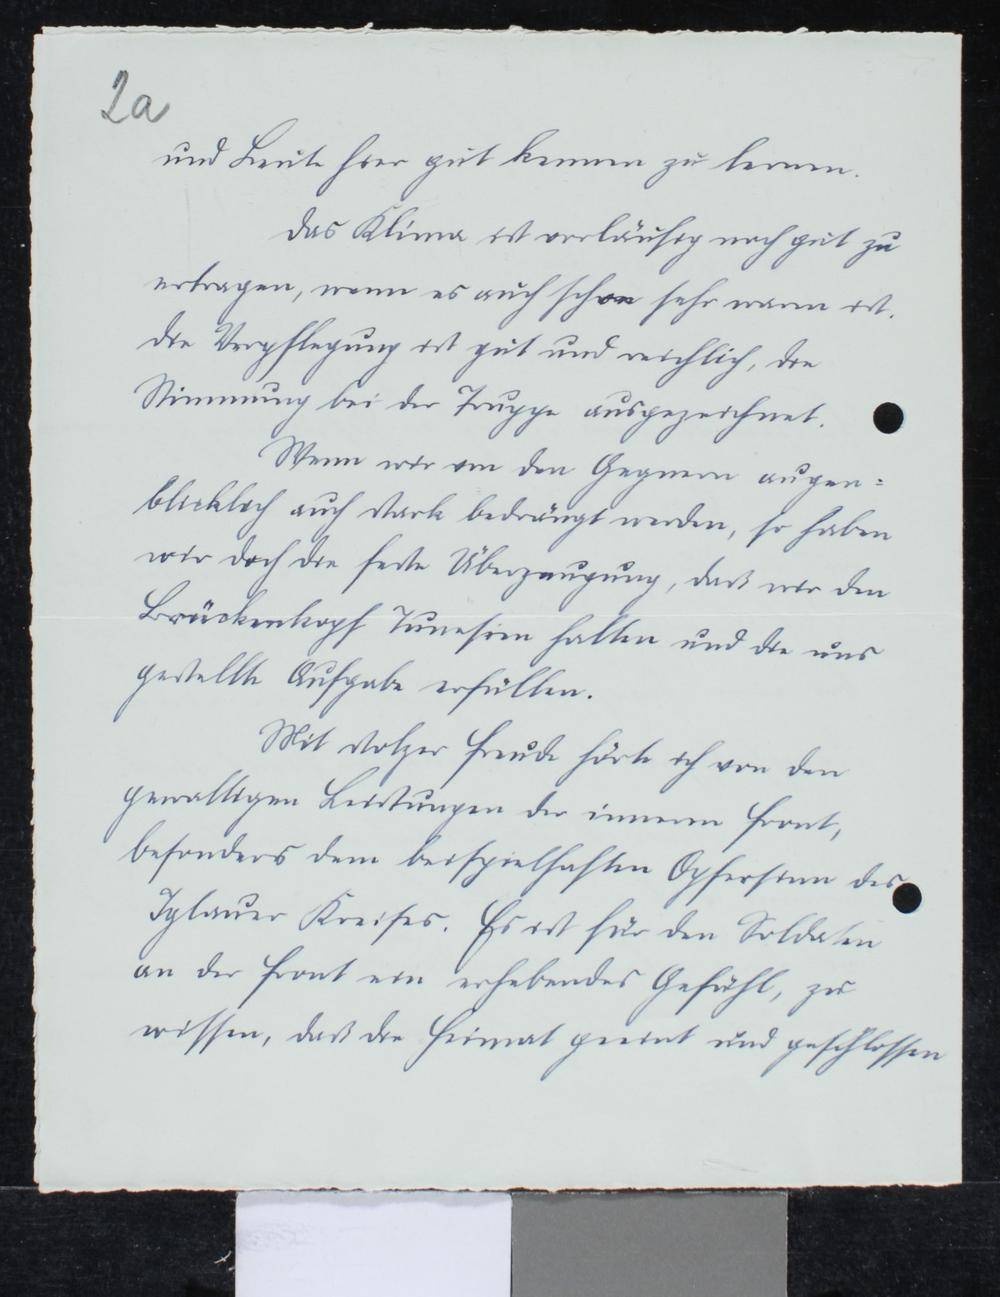 2a
und Leute hier gut kennen zu lernen.
Das Klima ist vorläufig noch gut zu
ertragen, wenn es auch schon sehr warm ist.
Die Verpflegung ist gut und reichlich, die
Stimmung bei der Truppe ausgezeichnet.
Wenn wir von den Gegnern augen=
blicklich auch stark bedrängt werden, so haben
wir doch die feste Überzeugung, daß wir den
Brückenkopf Tunesien halten und die uns
gestellte Aufgabe erfüllen.
Mit stolzer Freude hörte ich von den
gewaltigen Leistungen der inneren Front,
besonders dem beispielhaften Opfersinn des
Iglauer Kreises. Es ist für den Soldaten
an der Front ein erhebendes Gefühl, zu
wissen, daß die Heimat geeint und geschlossen